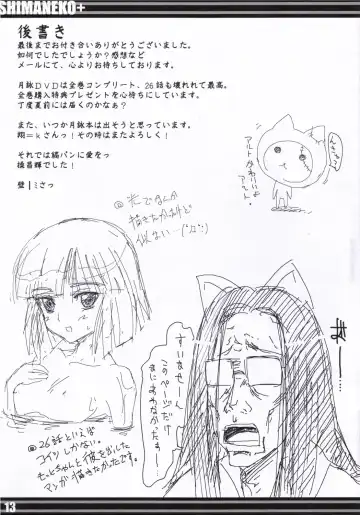 SHIMANEKO+
後書き
最後までお付き合いありがとうございました。
如何でしたでしょうか？感想など
メールにて、心よりお待ちしております。
月詠ＤＶＤは全巻コンプリート、２６話も壊れてて最高。
全巻購入特典プレゼントを心待ちにしています。
丁度夏前には届くのかなぁ？
また、いつか月詠本は出そうと思っています。
翔＝ｋさんっ！その時はまたよろしく！
それでは縞パンに愛をっ
後昌輝でした！
壁｜ミさっ
アルトかわいいよ
アルト。
描きたかったけど
似ない…
すいません
このページだけ
まにあわなかったすー
@26話といえば
コイツしかない。
もっとちゃんと彼を出した
マンガ描きたかったです。
13